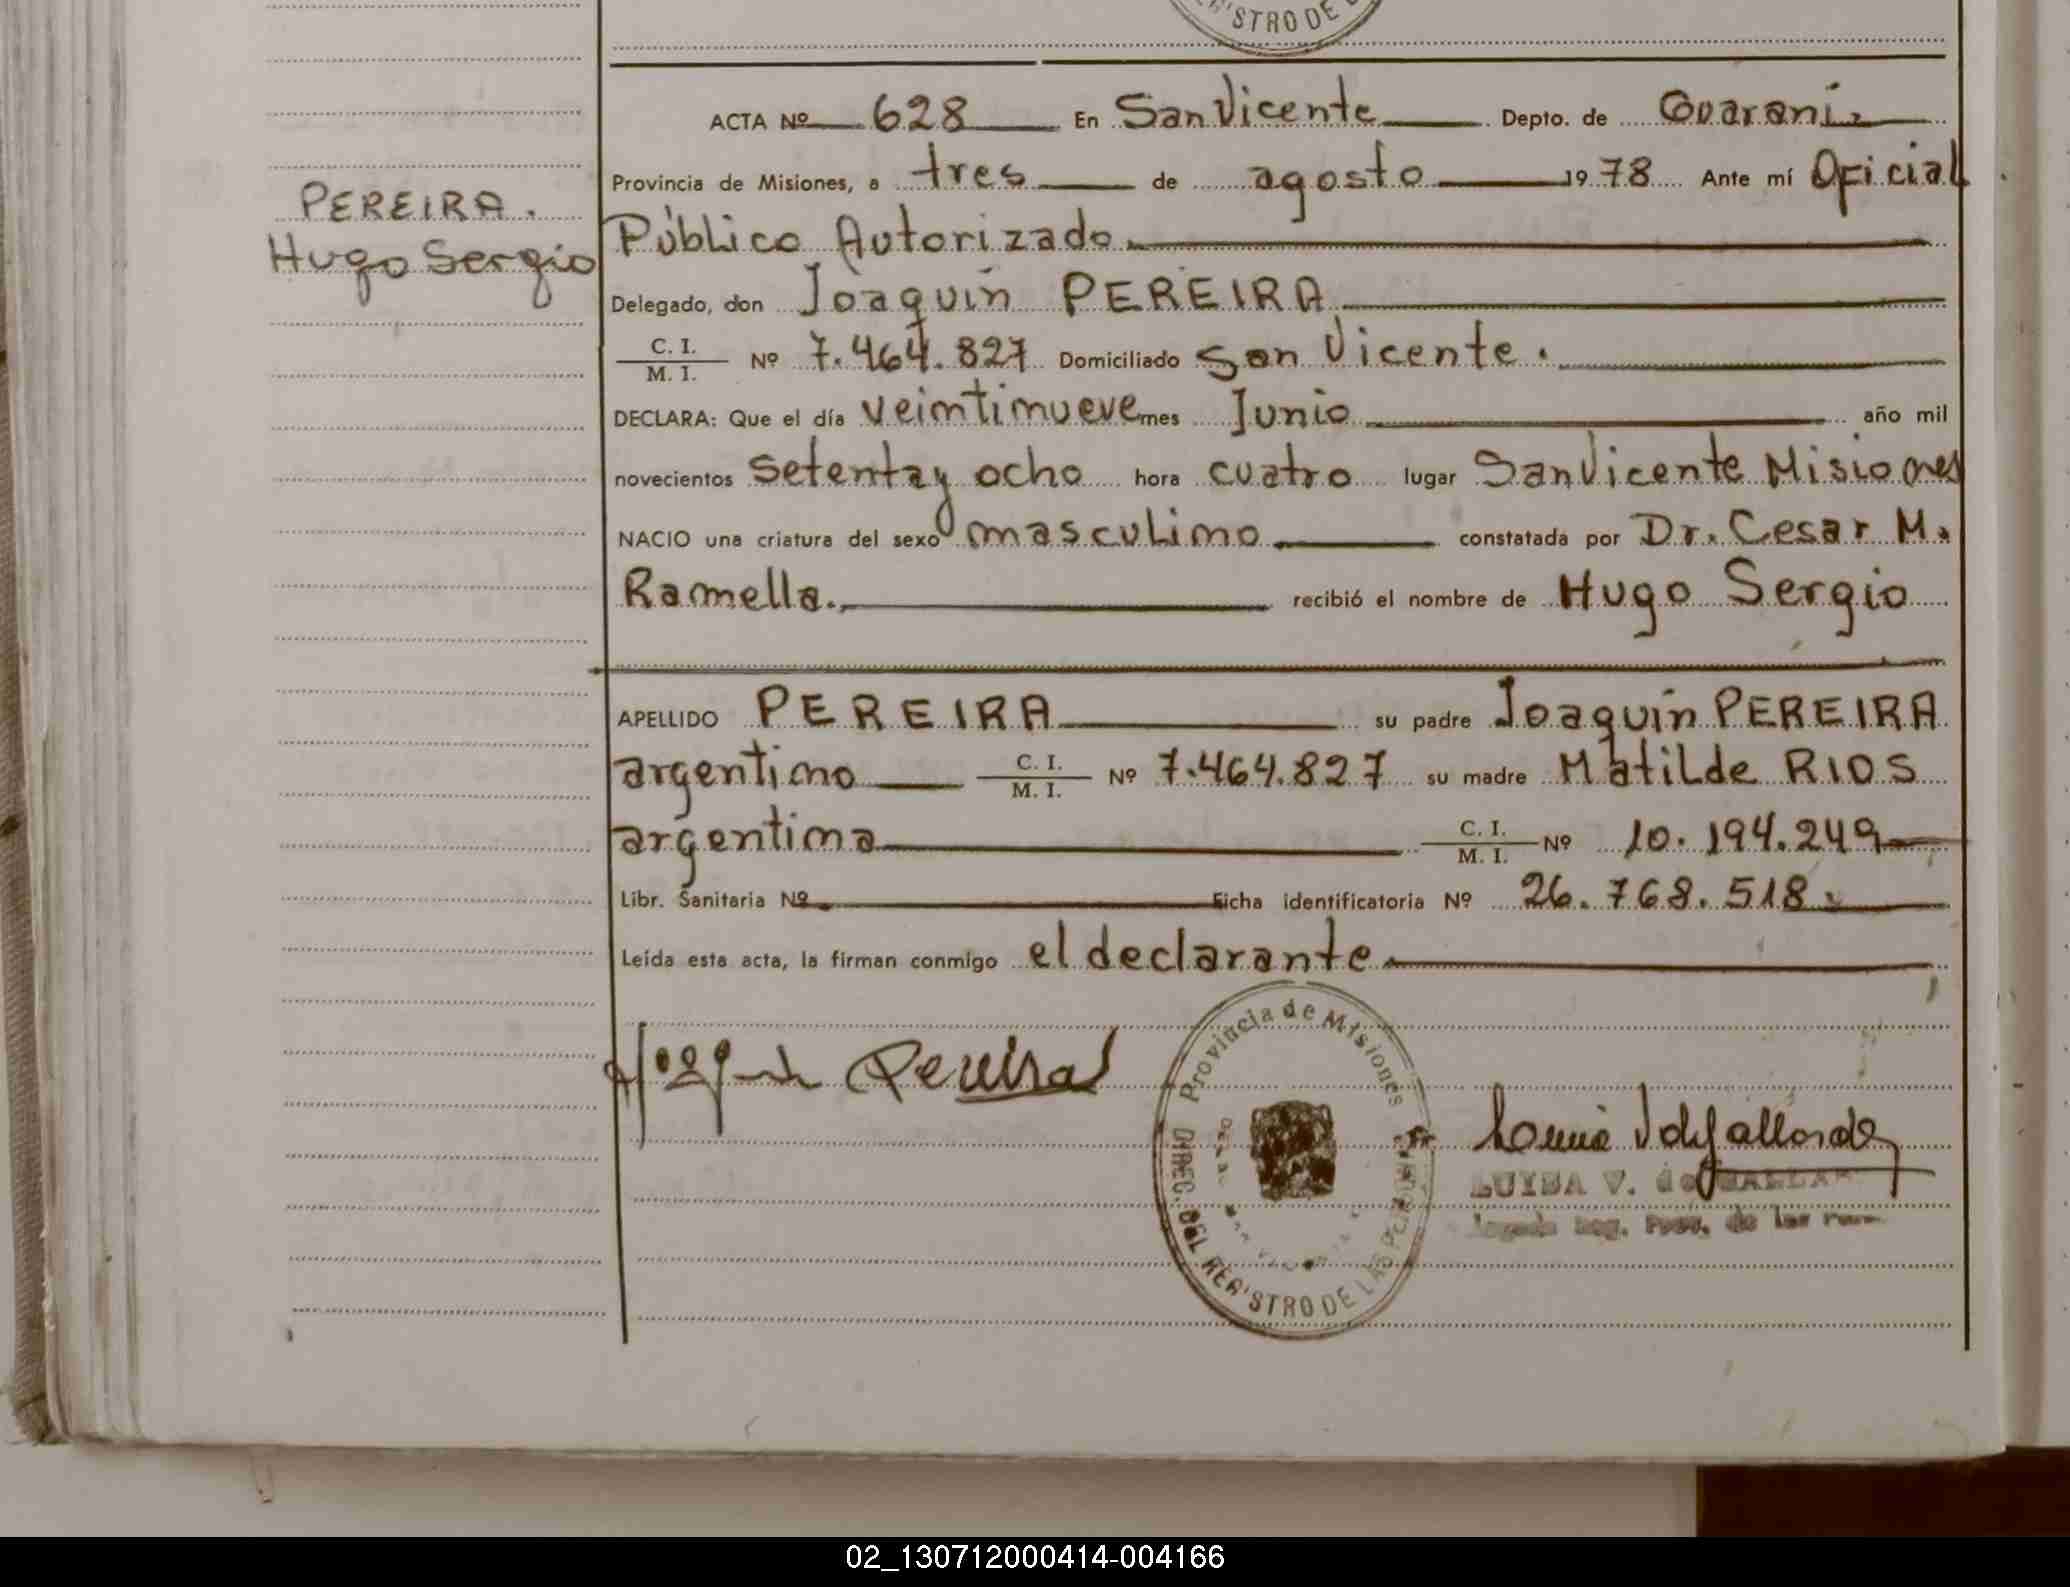 REG'STRO DE L
ACTA Nº 628 En San Vicente Depto. de Guaraní
Provincia de Misiones, a tres de agosto 1978 Ante mí Oficial
PEREIRA.
Hugo Sergio
Público Autorizado
Delegado, don Joaquín PEREIRA
C. I.
M. I. Nº 7.464.827 Domiciliado San Vicente.
DECLARA: Que el día veintinueve mes Junio año mil
novecientos setenta y ocho hora cuatro lugar San Vicente Misiones
NACIO una criatura del sexo masculino constatada por Dr. Cesar M.
Ramella. recibió el nombre de Hugo Sergio
APELLIDO PEREIRA su padre Joaquín PEREIRA
argentino C. I.
M. I. Nº 7.464.827 su madre Matilde RIOS
argentina C. I.
M. I. Nº 10.194.249
Libr. Sanitaria Nº Ficha identificatoria Nº 26.768.518
Leída esta acta, la firman conmigo el declarante
Pereira
Provincia de Misiones
DIREC. DEL REG'STRO DE LAS
LUISA V. de
Reg. Prov. de las
02_130712000414-004166